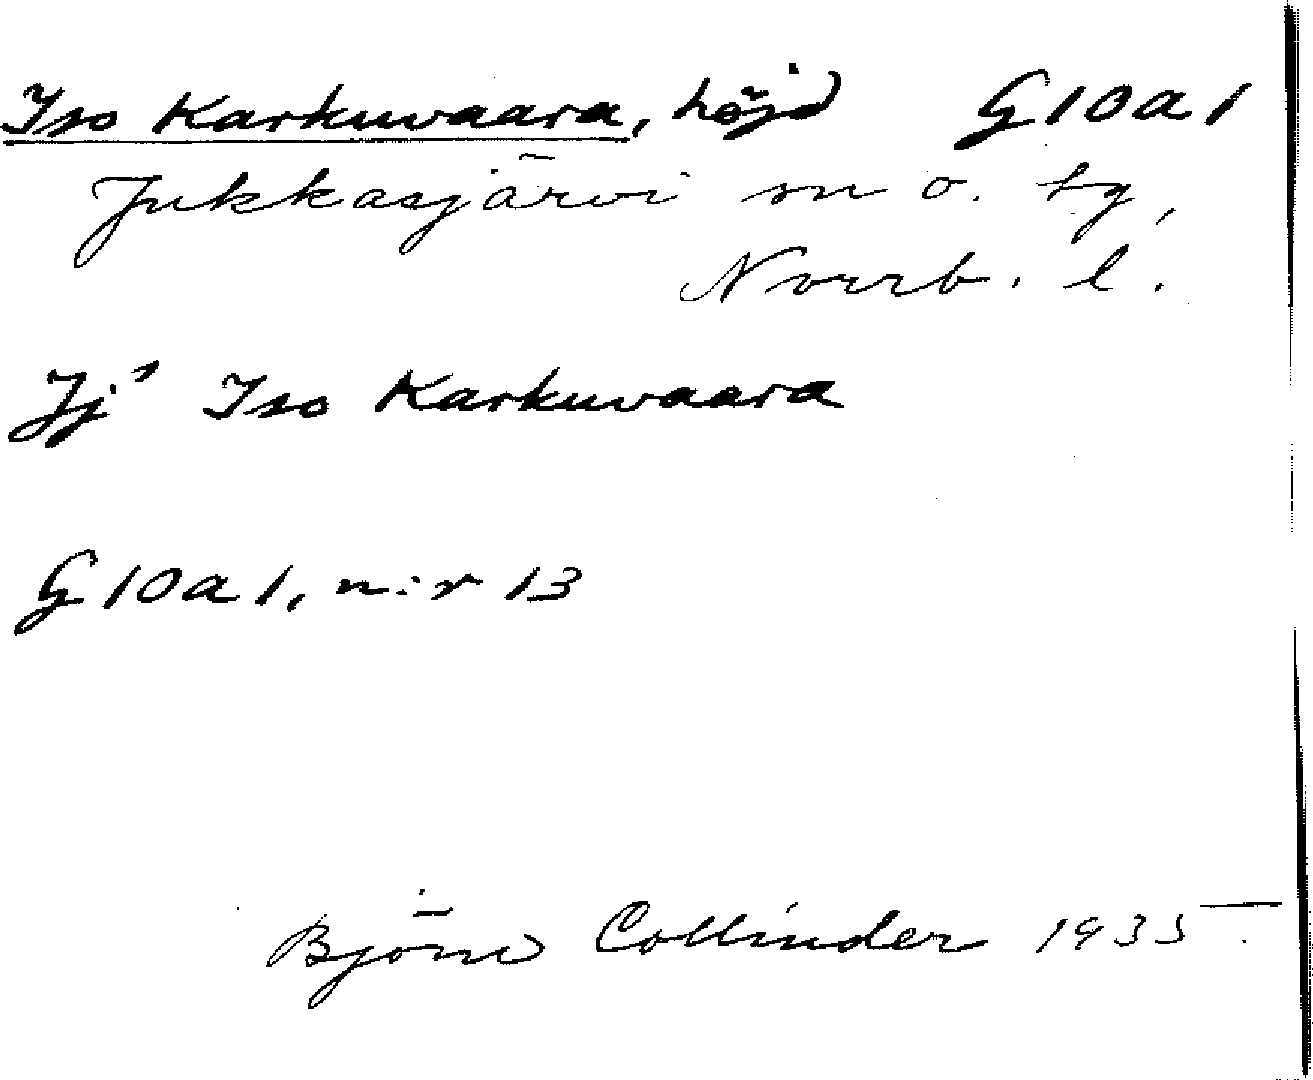 Iso Karkuvaara, höjd G10a1
Jukkasjärvi sn o. tg,
Norrb. l.
Jj⁵ Iso Karkuvaara
G10a1, n:r 13
Björn Collinder 1935